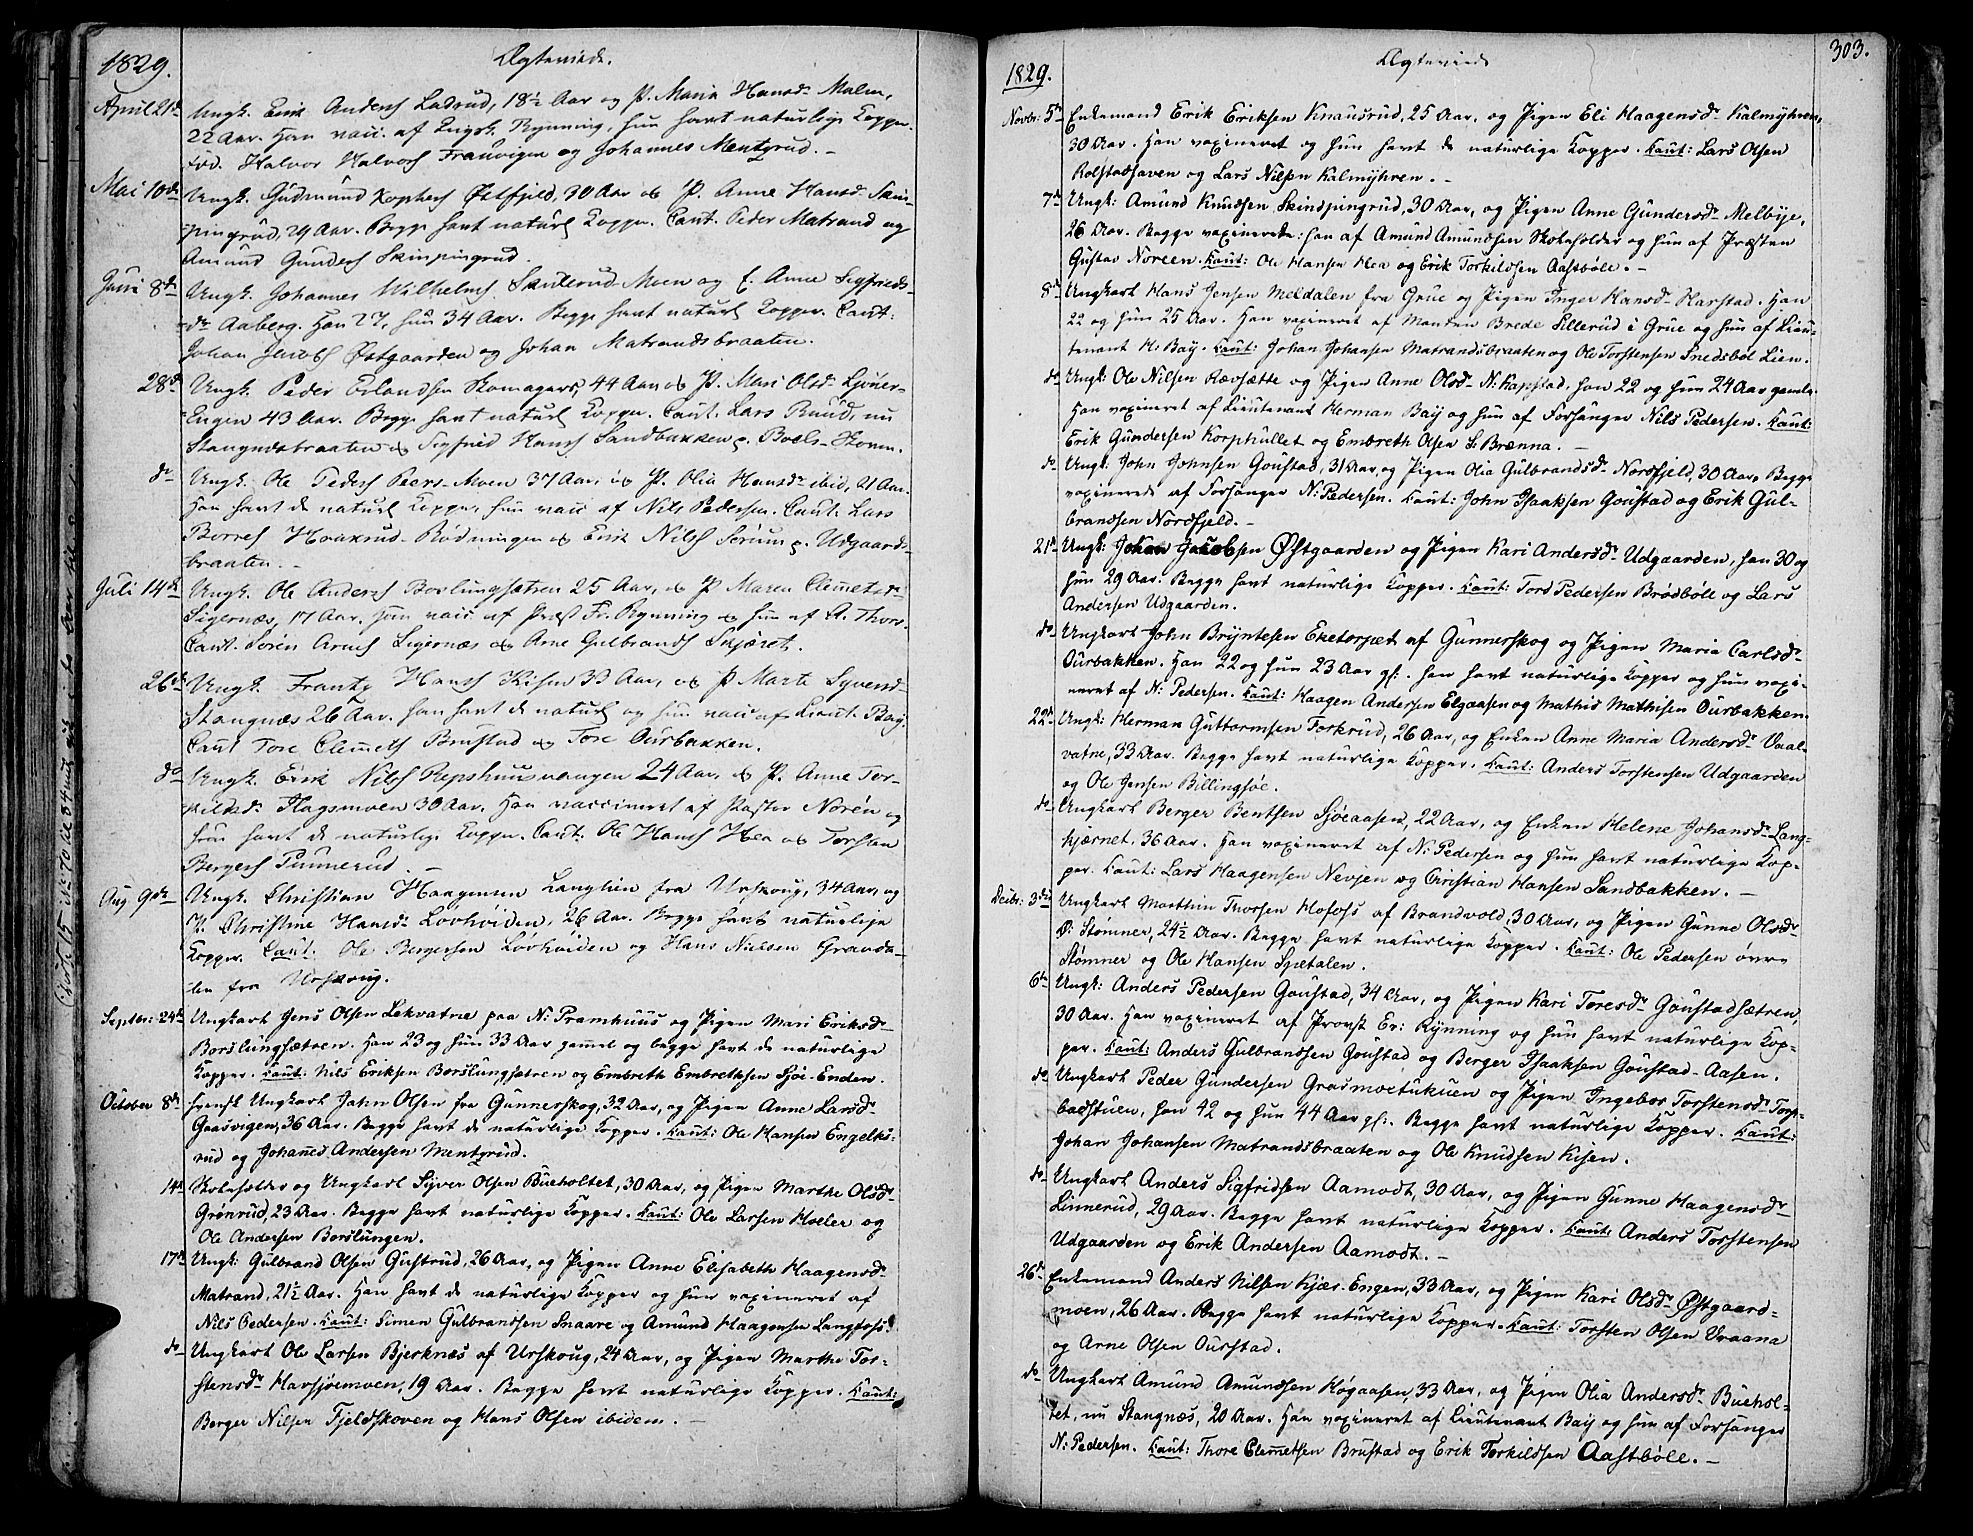 1829.
Ægteviede.
April 21de Ungk. Erik Anders Ladrud, 18½ Aar og P. Maria Hansdr Malm,
22 Aar. Han vacc. af Rynning, hun havt naturlige Kopper.
Halvor Halvors og Johannes Mentzrud. –
Mai 10de Ungk. Gudmund Østfjeld, 30 Aar og P. Anne Hansdr Skin-
pingrud, 29 Aar. Begge havt naturl Kopper. Caut. Peder Matrand og
Amund Gunders Skinpingrud.
Juni 8de Ungk. Johannes Wilhelms Skulerud-Moen og E. Anne Sigfrids-
dr Aaberg. Han 27, hun 34 Aar. Begge havt naturl Kopper. Caut:
Johan Jacobs Østgaarden og Johan Matrandsbraaten.
28de Ungk. Peder Erlandsen 44 Aar og P. Mari Olsdr
Engen 43 Aar. Begge havt naturl Kopper. Caut. Lars Ruud, nu
Stangnæsbraaten og Sigfrid Hans Sandbakken p. Boels-
do Ungk. Ole Peders Peers-Moen 37 Aar, og P. Olia Hansdr ibid, 21 Aar.
Han havt de naturl Kopper, hun vacc af Nils Pedersen. Caut. Lars
Borres Haakrud-Rødningen og Erik Nils Sørum p. Udgaards-
braaten. –
Juli 14de Ungk. Ole Anders Borlungsætren 25 Aar, og P Maren Clemetsdr
Sigernæs, 17 Aar. Han vacc af Præst Fr. Rynning og hun af A. Thors.
Caut. Søren Arnes Sigernæs og Arne Gulbrands Skjæret.
26de Ungk. Frantz Hans Kisen 33 Aar, og P Marte Syversdr
Stangnæs 26 Aar. han havt de naturl og hun vacc af Lieut. Bay.
Caut Tore Clemets Brustad og Tore Ourbakken.
do Ungk. Erik Nils Repshuusvangen 24 Aar, og P. Anne Tor-
kildsdr Flagsmoen 30 Aar. Han vaccineret af Pastor Norén og
hun havt de naturlige Kopper. Caut. Ole Hans Hea og Torsten
Bergers Tunnerud. –
Aug 9de Ungk. Christian Haagensen Langlien fra Urskoug, 34 Aar, og
P. Christine Hansdr Lovhøiden, 26 Aar. Begge havt naturlige
Kopper. Caut. Ole Bergersen Lovhøiden og Hans Nielsen Gravda-
len fra Urskoug.
Septbr: 24de Ungkarl Jens Olsen Lekvatne paa N: Pramhuus og Pigen Mari Eriksdr
Borslungsætren. Han 23 og hun 33 Aar gammel og begge havt de naturlige
Kopper. Kaut: Nils Eriksen Borslungsætren og Embreth Embrethsen Sjöe-Enden.
October 8de Svensk Ungkarl Jahn Olsen fra Gunnerskog, 32 Aar, og Pigen Anne Larsdr
Gaasvigen, 36 Aar. Begge havt de naturlige Kopper. Kaut: Ole Hansen Engelks-
rud og Johanes Andersen Mentzrud.
14de Skoleholder og Ungkarl Syver Olsen Bueholtet, 30 Aar, og Pigen Marthe Olsdr
Grønrud, 23 Aar. Begge havt naturlige Kopper. Kaut: Ole Larsen Moeler og
Ole Andersen Borslungen.
17de Ungk: Gulbrand Olsen Gustrud, 26 Aar, og Pigen Anne Elisabeth Haagensdr
Matrand, 21½ Aar. Han havt de naturlige Kopper og hun vaxineret af
Nils Pedersen. Kaut: Simen Gulbrandsen Snaare og Amund Haagensen Langfoss.
do Ungkarl Ole Larsen Bjerknæs af Urskoug, 24 Aar, og Pigen Marthe Tor-
stensdr Havsjøemoen, 19 Aar. Begge havt naturlige Kopper. Kaut:
Berger Nilsen Fjeldskoven og Hans Olsen ibidem. –
303.
1829.
Ægteviede
Novbr: 5te Enkemand Erik Eriksen Knausrud, 25 Aar, og Pigen Eli Haagensdr Kalmyhren,
30 Aar. Han vaxineret og hun havt de naturlige Kopper. Kaut: Lars Olsen
Rolstadhaven og Lars Nilsen Kalmyhren. –
7de Ungk: Amund Knudsen Skindpungrud, 30 Aar, og Pigen Anne Gundersdr Melbye,
26 Aar. Begge vaxinerede: han af Amund Amundsen Skoleholder og hun af Præsten
Gustav Noreen. Kaut: Ole Hansen Hea og Erik Torkildsen Aastböle. –
8de Ungkarl Hans Jensen Meldalen fra Grue og Pigen Inger Hansdr Harstad. Han
22 og hun 25 Aar. Han vaxineret af Morten Brede Sillerud i Grue og hun af Lieu-
tenant H: Bay. Kaut: Johan Johansen Matrandsbraaten og Ole Torstensen Snedsböl Lien.
do Ungk: Ole Nilsen Rævsætte og Pigen Anne Olsdr N: Kapstad, han 22 og hun 24 Aar gamle.
Han vaxineret af Lieutenant Herman Baij og hun af Forsanger Nils Pedersen. Kaut:
Erik Gundersen Korphullet og Embreth Olsen S: Brænna. –
do Ungk: John Johnsen Goustad, 31 Aar og Pigen Olia Gulbrandsdr Nordfjeld, 30 Aar, Begge
vaxinerede af Forsanger N: Pedersen. Kaut: John Isaaksen Goustad og Erik Gul-
brandsen Nordfjeld. –
21de Ungk: Johan Jacobsen Østgaarden og Pigen Kari Andersdr Udgaarden, han 30 og
hun 29 Aar. Begge havt naturlige Kopper. Kaut: Tord Pedersen Brødbøle og Lars
Andersen Udgaarden.
do Ungkarl John Bryntesen Eketorpet af Gunnerskog og Pigen Maria Carlsdr
Ourbakken. Han 22 og hun 23 Aar gl:. han havt naturlige Kopper og hun vaxi-
neret af N: Pedersen. Kaut: Haagen Andersen Elgaasen og Mathis Mathisen Ourbakken.
22de Ungk: Herman Guttormsen Torkrud, 26 Aar, og Enken Anne Maria Andersdr Vaal-
vatne, 33 Aar. Begge havt naturlige Kopper. Kaut: Anders Torstensen Udgaarden
og Ole Jensen Billingsøe.
do Ungkarl Berger Bentsen Sjöeaasen, 22 Aar, og Enken Helene Johansdr Lang-
kjærnet, 36 Aar. Han vaxineret af N: Pedersen og hun havt naturlige Kop-
per. Kaut: Lars Haagensen Nevjen og Christian Hansen Sandbakken. –
Decbr: 3die Ungkarl Morthin Thorsen Hofoss af Brandvold, 30 Aar, og Pigen Gunne Olsdr
Ø: Stømner, 24½ Aar. Begge havt naturlige Kopper. Kaut: Ole Pedersen øvre
Stømner og Ole Hansen Spetalen.
6te Ungk: Anders Pedersen Goustad, 34 Aar, og Pigen Kari Toresdr Goustadsætren,
30 Aar. Han vaxineret af Provst Er: Rynning og hun havt naturlige Kop-
per. Kaut: Anders Gulbrandsen Goustad og Berger Isaaksen Goustad-Aasen.
do Ungkarl Peder Gundersen Grasmoetukuen og Pigen Ingebor Torstensdr Torp-
badstuen, han 42 og hun 44 Aar gl:. Begge havt naturlige Kopper. Kaut:
Johan Johansen Matrandsbraaten og Ole Knudsen Kisen.
do Ungkarl Anders Sigfridsen Aamodt, 30 Aar, og Pigen Gunne Haagensdr
Linnerud, 29 Aar. Begge havt naturlige Kopper. Kaut: Anders Torstensen
Udgaarden og Erik Andersen Aamodt. –
26de Enkemand Anders Nilsen Kjær-Engen, 33 Aar, og Pigen Kari Olsdr Østgaard-
moen, 26 Aar. Begge havt naturlige Kopper. Kaut: Torsten Olsen Vraana
og Arne Olsen Ourstad.
do Ungkarl Amund Amundsen Høgaasen, 33 Aar, og Pigen Olia Andersdr Buehol-
tet, nu Stangnæs, 20 Aar. Han vaxineret af Lieutenant Baij og hun af Forsanger
N: Pedersen. Kaut: Thore Clemetsen Brustad og Erik Torkildsen Aastböle. –